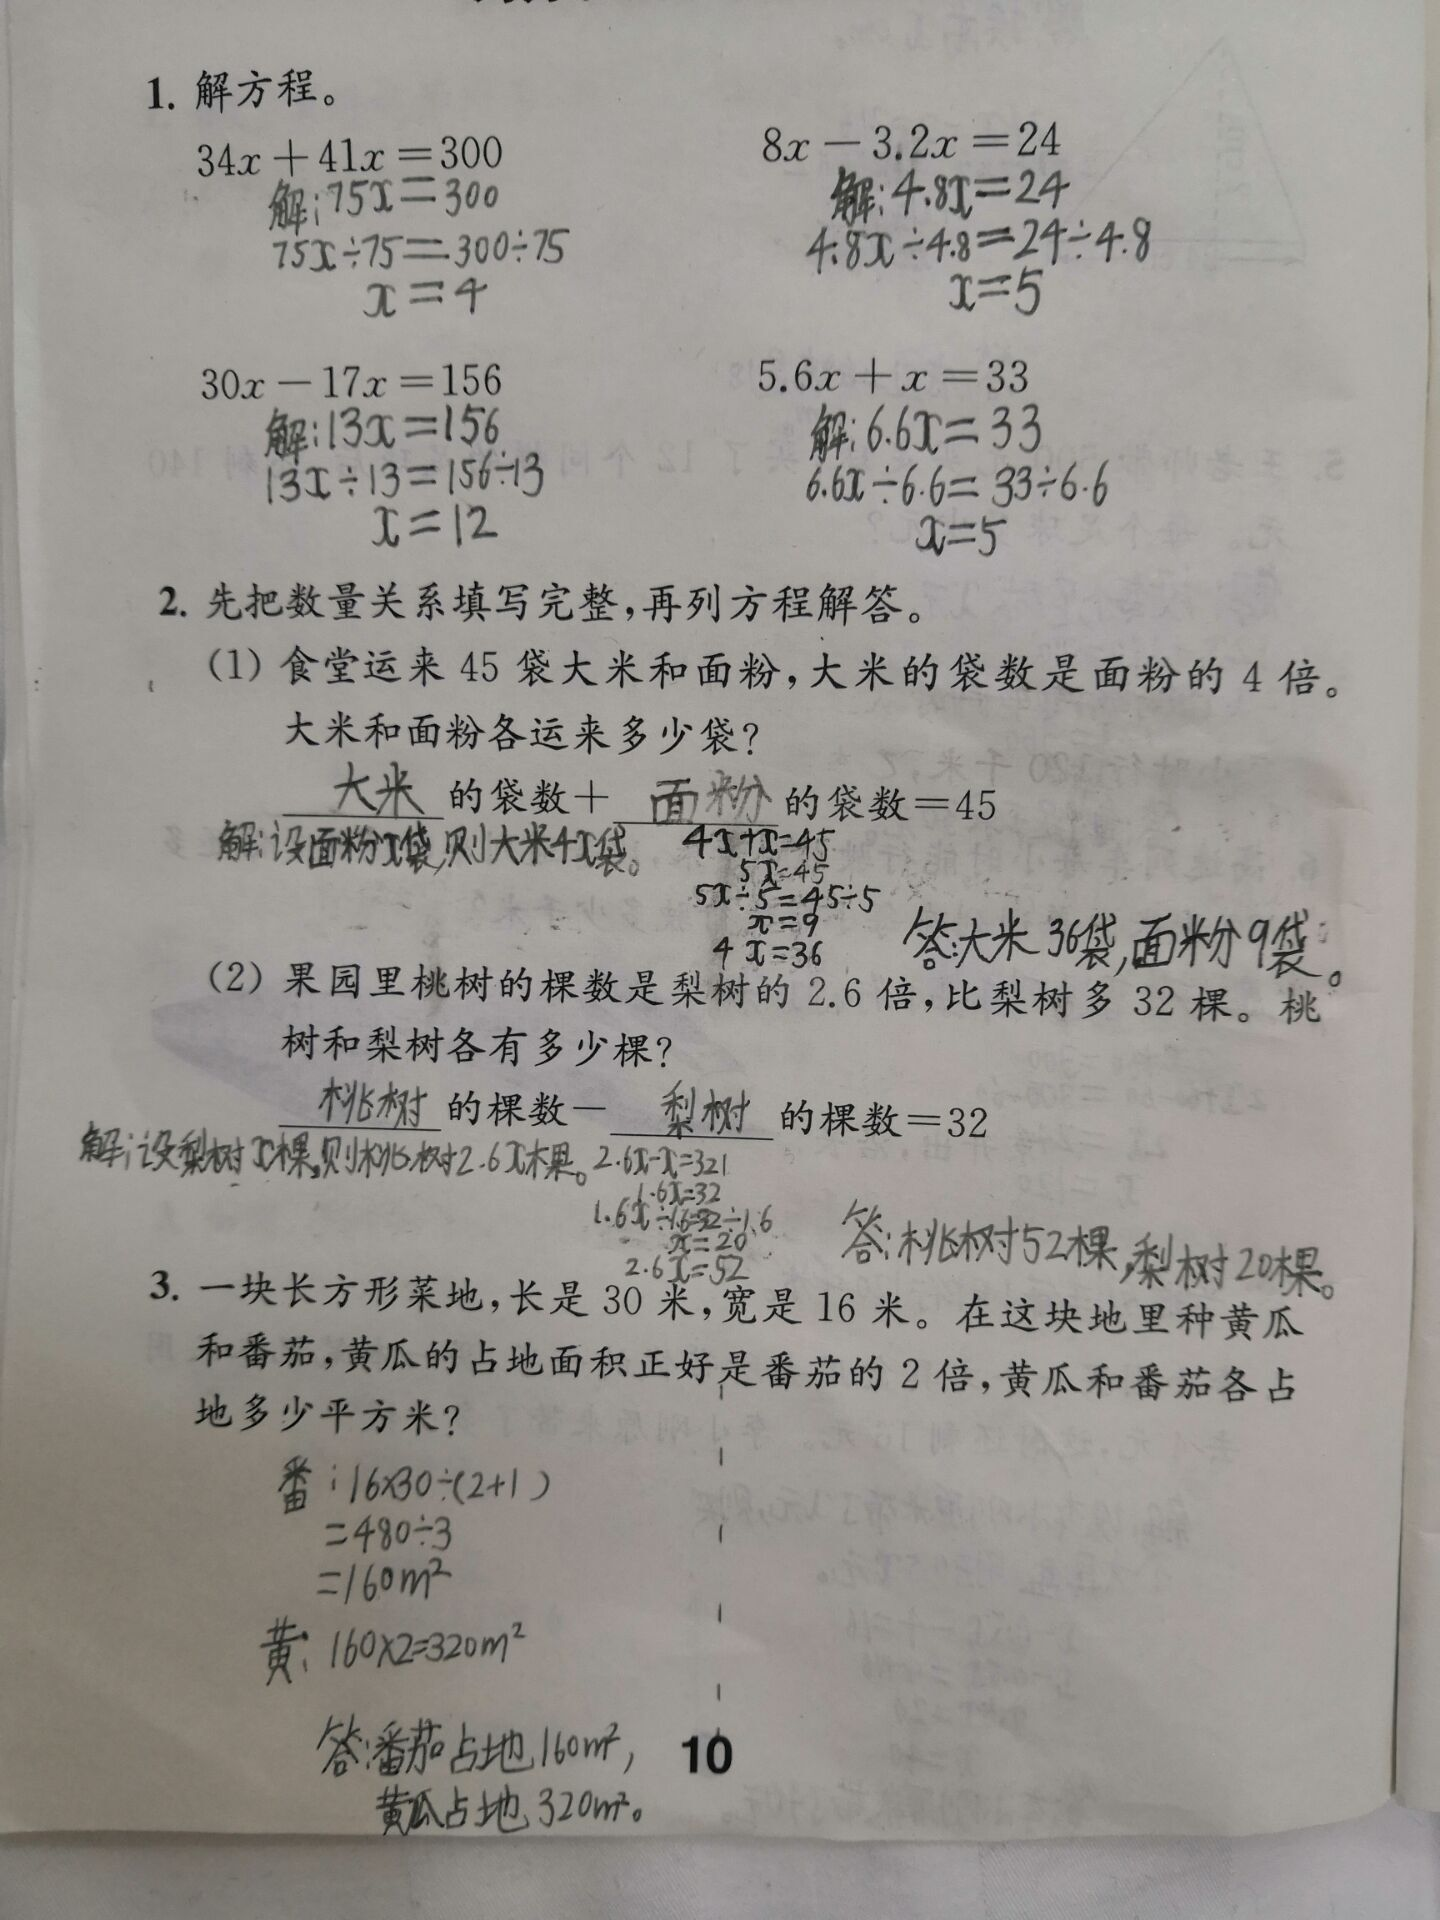 1. 解方程。
34x＋41x＝300
解:75x=300
75x÷75=300÷75
x=4
8x－3.2x＝24
解:4.8x=24
4.8x÷4.8=24÷4.8
x=5
30x－17x＝156
解:13x=156
13x÷13=156÷13
x=12
5.6x＋x＝33
解:6.6x=33
6.6x÷6.6=33÷6.6
x=5
2. 先把数量关系填写完整,再列方程解答。
(1) 食堂运来 45 袋大米和面粉,大米的袋数是面粉的 4 倍。
大米和面粉各运来多少袋?
大米 的袋数＋ 面粉 的袋数＝45
解:设面粉x袋,则大米4x袋。
4x+x=45
5x=45
5x÷5=45÷5
x=9
4x=36
答:大米36袋,面粉9袋。
(2) 果园里桃树的棵数是梨树的 2.6 倍,比梨树多 32 棵。桃
树和梨树各有多少棵?
桃树 的棵数－ 梨树 的棵数＝32
解:设梨树x棵,则桃树2.6x棵。
2.6x-x=321
1.6x=32
1.6x÷1.6=32÷1.6
x=20
2.6x=52
答:桃树52棵,梨树20棵。
3. 一块长方形菜地,长是 30 米,宽是 16 米。在这块地里种黄瓜
和番茄,黄瓜的占地面积正好是番茄的 2 倍,黄瓜和番茄各占
地多少平方米?
番:16×30÷(2+1)
=480÷3
=160m²
黄:160×2=320m²
答:番茄占地160m²,
黄瓜占地320m²。
10